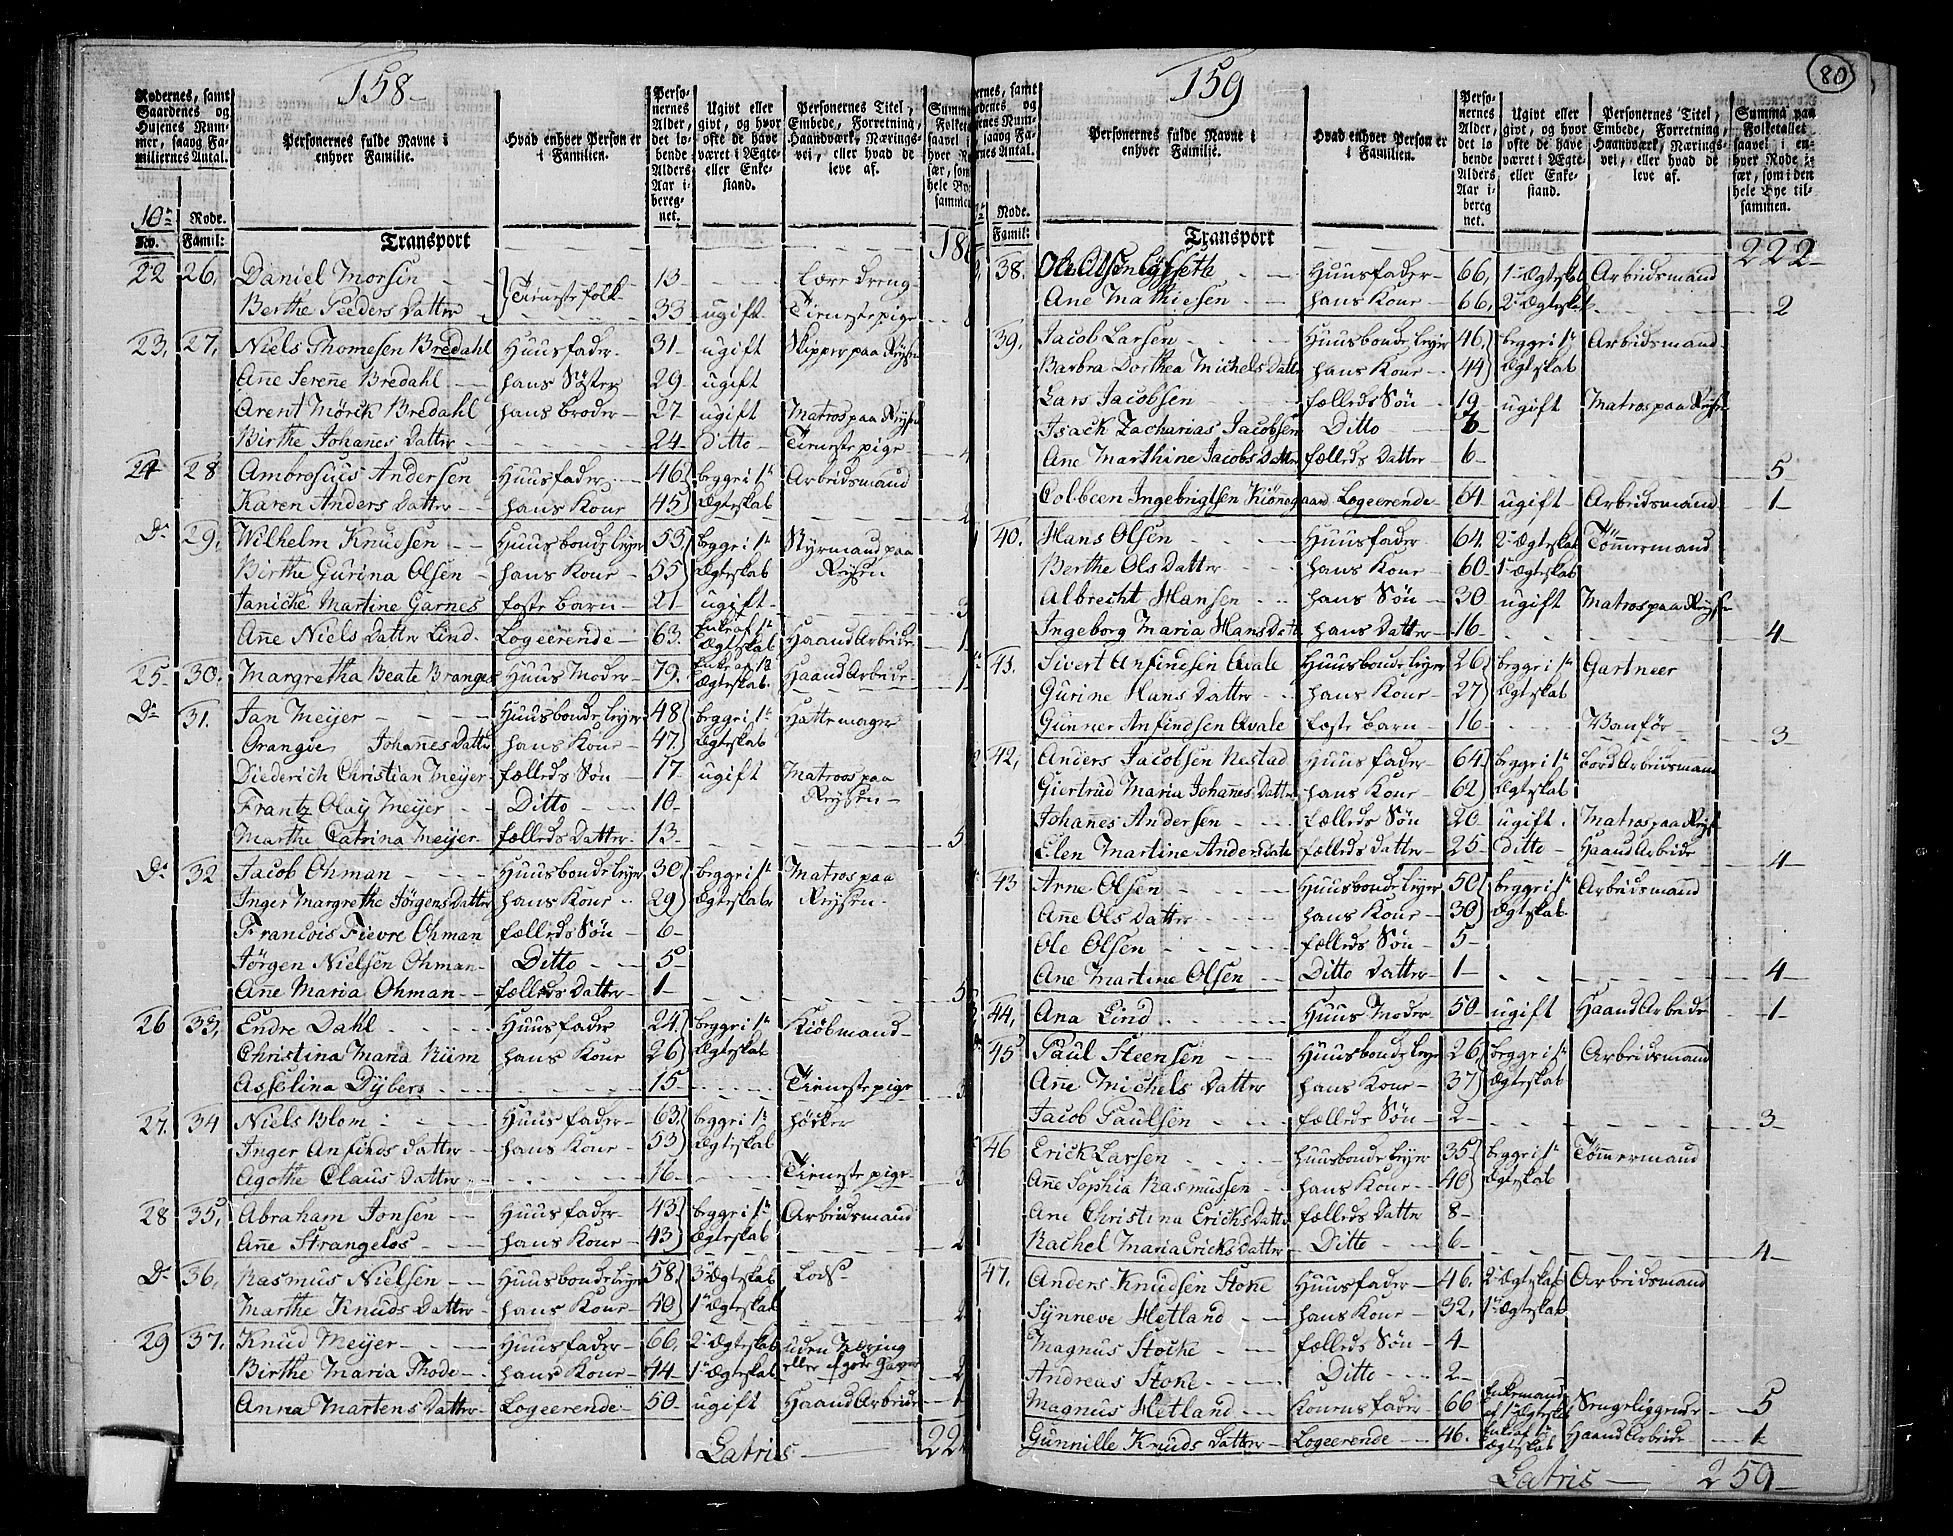 158
Rodernes, samt Gaardenes og Husenes Nummer, saaog Familiernes Antal.
Personernes fulde Navne i enhver Familie.
Hvad enhver Person er i Familien.
Personernes Alder, det løbende Alders Aar iberegnet.
Ugivt eller givt, og hvor ofte de have været i Ægte- eller Enkestand.
Personernes Titel, Embede, Forretning, Haandværk, Næringsvei, eller hvad de leve af.
10de Rode.
No. Famil: Transport
22 26. Daniel Morsen Tienestefolk 13 Lære dreng
Berthe Peders Datter 33 ugift Tienestepige
23. 27. Niels Thomesen Bredahl Huusfader 31 ugift Skipper paa Reysen
Anne Serenne Bredahl hans Søster 29 ugift
Arent Mörck Bredahl hans broder 27 ugift Matros paa Reysen
Birthe Johannes Datter 24 Ditto Tienestepige
24 28 Ambrosius Andersen Huusfader 46 begge i 1te Arbeidsmand
Karen Anders Datter hans Kone 45 Ægteskab
Do 29. Wilhelm Knudsen Huusbonde leyer 53 begge i 1te Styrmand paa
Birthe Gurina Olsen hans Kone 55 Ægteskab Reysen
Janiche Martine Garnes foster barn 21 ugift 3
Anne Niels Datter Lind Logeerende 63. Enke af 1te Ægteskab Haand Arbeide 1
25 30. Margretha Beate Branger Huus Moder 79. Ægteskab Haand Arbeide 1
Do 31. Jan Meyer Huusbonde leyer 48 begge i 1te Hattemager
Orangie Johannes Datter hans Kone 47 Ægteskab
Diederich Christian Meyer fælleds Søn 17 ugift Matros paa
Frantz Olay Meyer Ditto 10 Reysen
Marthe Catrina Meyer fælleds Datter 13 5
Do 32 Jacob Ohman Huusbonde leyer 30 begge i 1te Matros paa
Inger Margrethe Jörgens Datter hans Kone 29 Ægteskab Reysen
Francois Fievre Ohman fælleds Søn 6
Jörgen Nielsen Ohman Ditto 5
Anne Maria Ohman fælleds Datter 1 5
26 33. Endre Dahl Huusfader 24 begge i 1te Kiöbmand
Christina Maria Kiim hans Kone 26 Ægteskab
Asselina Dybers 15 Tienestepige 3
27. 34 Niels Blom Huusfader 63 begge i 1te Höcker
Inger Anfinds Datter hans Kone 53 Ægteskab
Agothe Claus Datter 16 Tienestepige 3
28 35. Abraham Jonsen Huusfader 43 begge i 1te Arbeidsmand
Anne Strangelos hans Kone 43 Ægteskab 2
Do 36. Rasmus Nielsen Huusbonde leyer 58. 3de Ægteskab Lods
Marthe Knuds Datter hans Kone 40 1te Ægteskab 2
29 37. Knud Meyer Huusfader 66. 2de Ægteskab uden Næring
Birthe Maria Thode hans Kone 44 1te Ægteskab eller af gode Gaver 2
Anna Martens Datter Logeerende 50 ugift Haand Arbeide 1
Latris 22
159
80
Personernes fulde Navne i enhver Familie.
Hvad enhver Person er i Familien.
Personernes Alder, det løbende Alders Aar iberegnet.
Ugivt eller givt, og hvor ofte de have været i Ægte- eller Enkestand.
Personernes Titel, Embede, Forretning, Haandværk, Næringsvei, eller hvad de leve af.
Summa paa Folketallet saavel i enhver Rode især, som i den hele Bye tilsammen.
Rode.
Famil: Transport 222
38. Huusfader 66, 1te Ægteskab Arbeidsmand
Ane Mathiesen hans Kone 66, 2de Ægteskab 2
39. Jacob Larsen Huusbonde leyer 46, begge i 1te Arbeidsmand
Barbra Dorthea Michels Datter hans Kone 44 Ægteskab
Lars Jacobsen fælleds Søn 19 ugift Matros paa Reysen
Isack Zacharias Jacobsen Ditto
Ane Marthine Jacobs Datter fælleds Datter 6 5
Colbeen Ingebrigtsen Kiönegaard Logeerende 64 ugift Arbeidsmand 1
40. Hans Olsen Huusfader 64. 2de Ægteskab Tömmermand
Berthe Ols Datter hans Kone 60 1te Ægteskab
Albrecht Hansen hans Søn 30 ugift Matros paa Reysen
Ingeborg Maria Hans Datter hans Datter 16 4
41. Sivert Anfindsen Qvale Huusbonde leyer 26 begge i 1te Gartneer
Gurine Hans Datter hans Kone 27 Ægteskab
Gunner Anfindsen Qvale foste barn 16 Vanför 3
42, Anders Jacobsen Nestad Huusfader 64 begge i 1te Bord Arbeidsmand
Giertrud Maria Johannes Datter hans Kone 62 Ægteskab
Johannes Andersen fælleds Søn 20 ugift Matros paa Reys
Elen Martine Anders Datter fælleds Datter 25 Ditto Haand Arbeide 4
43 Arne Olsen Huusbonde leyer 50 begge i 1te Arbeidsmand
Anne Ols Datter hans Kone 30 Ægteskab
Ole Olsen fælleds Søn 5
Ane Martine Olsen Ditto Datter 1 4
44, Ana Lind Huus Moder 50 ugift Haand Arbeide 1
45 Paul Steensen Huusbonde leyer 26 begge i 1te Arbeidsmand
Anne Michels Datter hans Kone 37 Ægteskab
Jacob Paulsen fælleds Søn 2 3
46 Erick Larsen Huusbonde leyer 35 begge i 1te Tömmermand
Anne Sophia Rasmussen hans Kone 40 Ægteskab
Ane Christina Ericks Datter fælleds Datter 8
Rachel Maria Ericks Datter Ditto 6 4
47. Anders Knudsen Stoke Huusfader 46. 2de Ægteskab Arbeidsmand
Synneve Hetland hans Kone 32, 1te Ægteskab
Magnus Stoke fælleds Søn 4
Andreas Stoke Ditto 2
Magnus Hetland Konens fader 66 Enkemand af 1te Ægteskab Sengeliggende 5
Gunnille Knuds Datter Logeerende 46. Enke af 1te Ægteskab Haand Arbeide 1
Latris 259